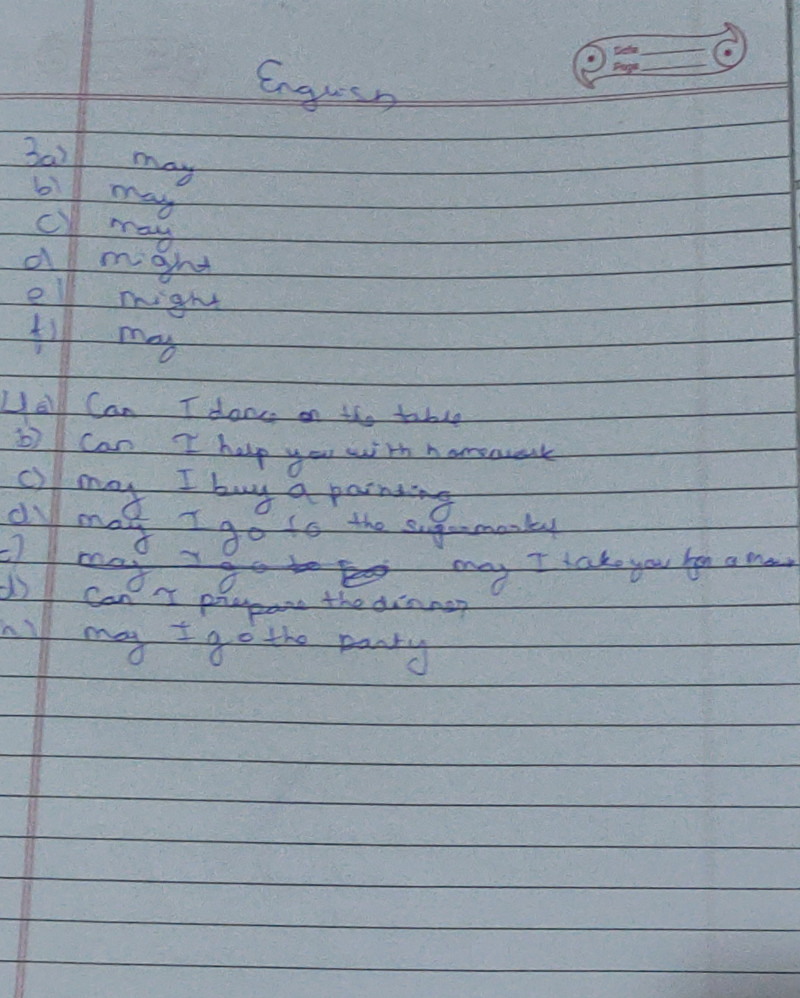 English
Date
Page
3a) may
b) may
c) may
d) might
e) might
f) may
4a) Can I dance on the table
b) Can I help you with homework
c) may I buy a painting
d) may I go to the supermarket
may I go to may I take you for a
d) Can I prepare the dinner
h) may I go the party